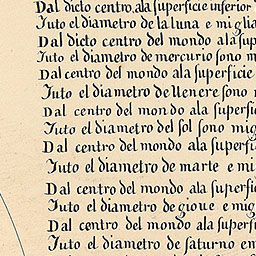 Dal dicto centro ala superficie inferior
Tuto el diametro de la luna e miglia
Dal dicto centro del mondo ala sup
Tuto el diametro de mercurio sono m
Dal centro del mondo ala superficie
Tuto el diametro de uenere sono
Dal centro del mondo ala superfi
Tuto el diametro del sol sono mig
Dal centro del mondo ala superfi
Tuto el diametro de marte e mi
Dal centro del mondo ala superfi
Tuto el diametro de gioue e mig
Dal centro del mondo ala superfi
Tuto el diametro de saturno em